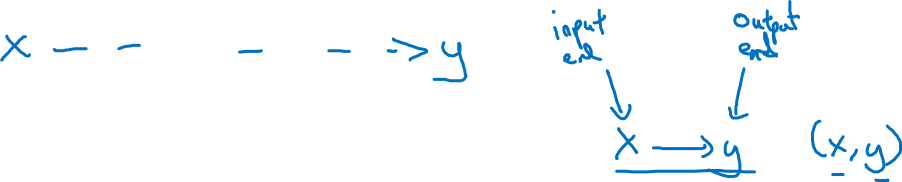 x -- -- -- -- --> y
input end
output end
x → y
(x, y)